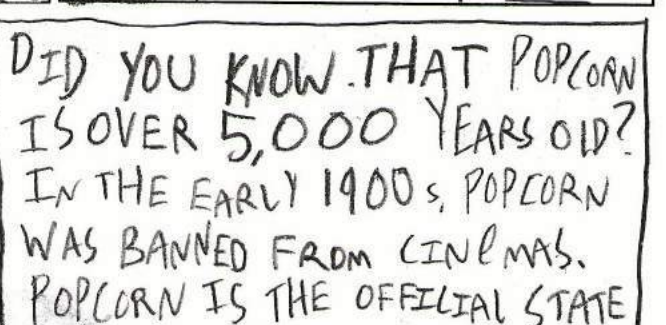 DID YOU KNOW THAT POPCORN
IS OVER 5,000 YEARS OLD?
IN THE EARLY 1900s, POPCORN
WAS BANNED FROM CINEMAS.
POPCORN IS THE OFFICIAL STATE